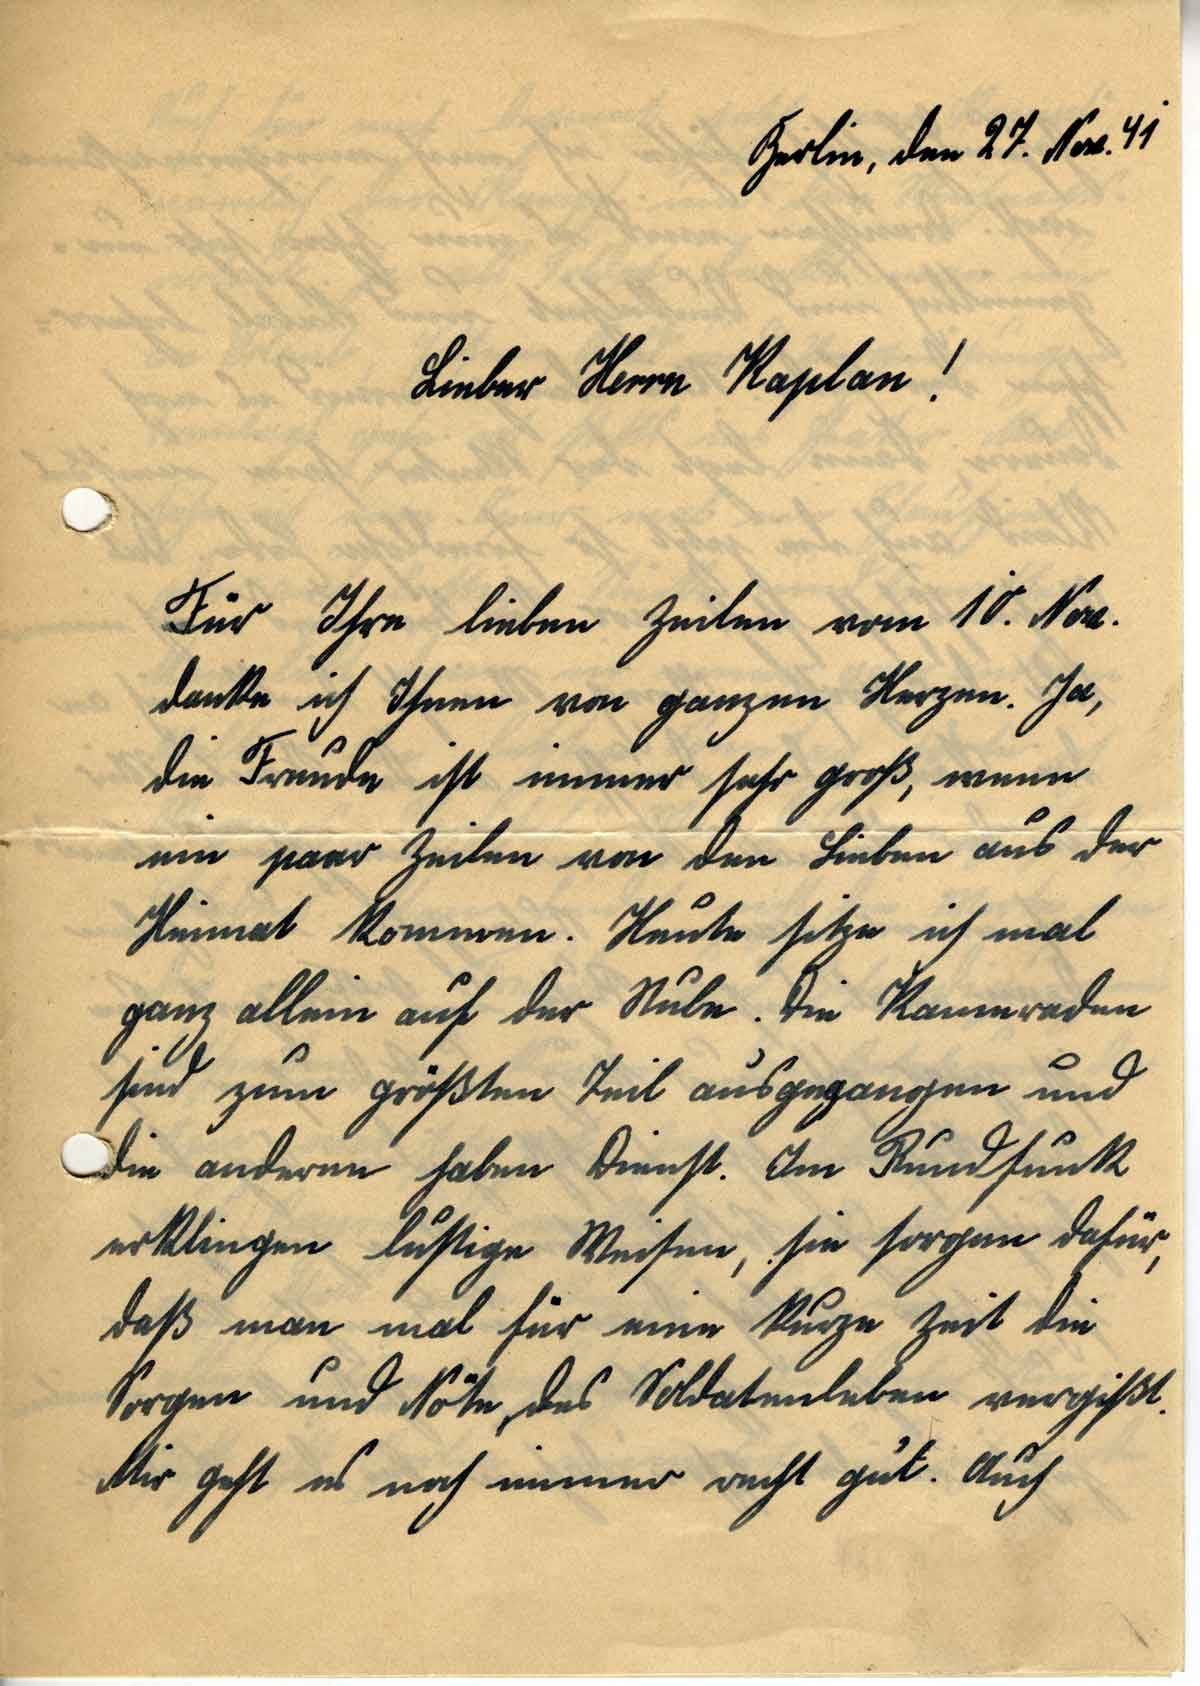 Berlin, den 27. Nov. 41
Lieber Herr Kaplan!
Für Ihre lieben Zeilen vom 10. Nov.
danke ich Ihnen von ganzen Herzen. Ja,
die Freude ist immer sehr groß, wenn
ein paar Zeilen von den Lieben aus der
Heimat kommen. Heute sitze ich mal
ganz allein auf der Stube. Die Kameraden
sind zum größten Teil ausgegangen und
die anderen haben Dienst. Im Rundfunk
erklingen lustige Weisen, sie sorgen dafür,
daß man mal für eine kurze Zeit die
Sorgen und Nöte des Soldatenleben vergißt.
Mir geht es noch immer recht gut. Auch